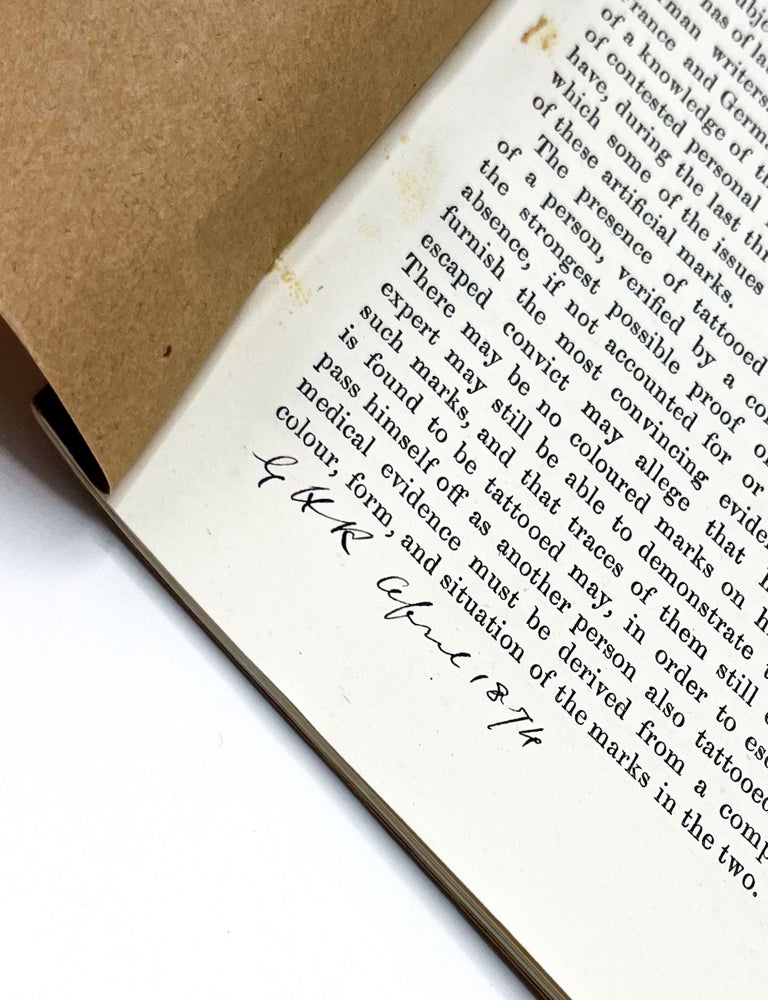 nas of la
rman writers
rance and Germ
of a knowledge of th
of contested personal
have, during the last thr
which some of the issues
of these artificial marks.
The presence of tattooed
of a person, verified by a co
the strongest possible proof o
absence, if not accounted for or
furnish the most convincing evide
escaped convict may allege that h
There may be no coloured marks on h
expert may still be able to demonstrate t
such marks, and that traces of them still e
is found to be tattooed may, in order to esc
pass himself off as another person also tattooed
medical evidence must be derived from a comp
colour, form, and situation of the marks in the two.
G H K April 1874